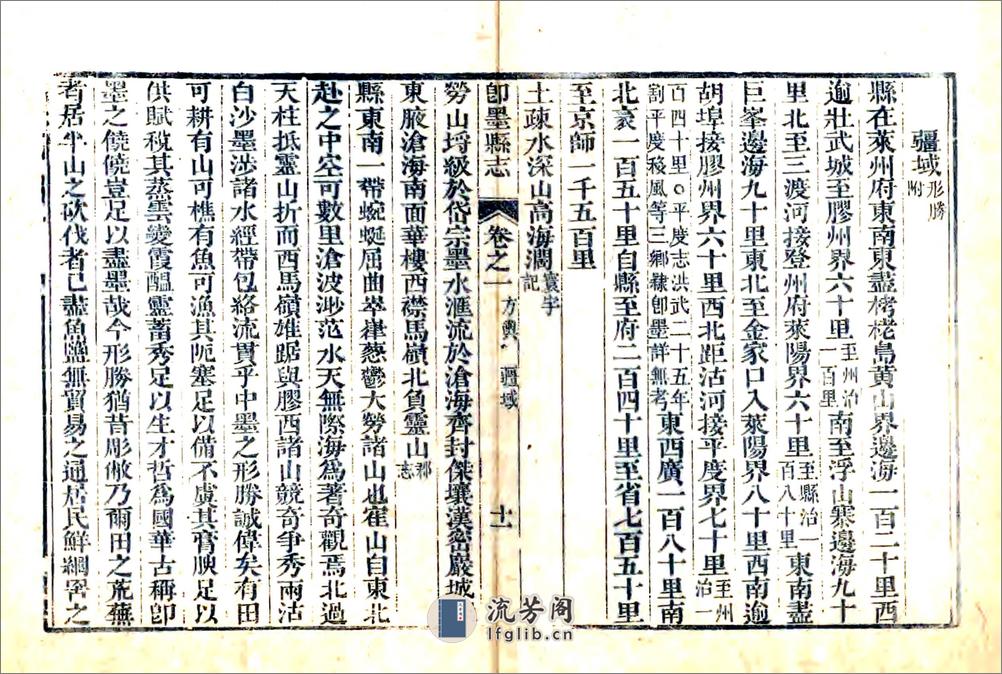 疆域形勝附
縣在萊州府東南東盡栲栳島黄山界邊海一百二十里西
逾壯武城至膠州界六十里至州治一百里南至浮山寨邊海九十
里北至三渡河接登州府萊陽界六十里至縣治一百八十里東南盡
巨峯邊海九十里東北至金家口入萊陽界八十里西南逾
胡埠接膠州界六十里西北距沽河接平度界七十里至州治一
百四十里○平度志洪武二十五年割平度移風等三鄉隸卽墨詳無考東西廣一百八十里南
北袤一百五十里自縣至府二百四十里至省七百五十里
至京師一千五百里
土疎水深山高海濶寰宇記
卽墨縣志
卷之一
方輿
疆域
十一
勞山埒級於岱宗墨水滙流於滄海齊封傑壤漢密嚴城
東腋滄海南面華樓西襟馬嶺北負靈山郡志
縣東南一帶蜿蜒屈曲崒嵂葱鬱大勞諸山也崔山自東北
赴之中空可數里滄波渺茫水天無際海爲著奇觀焉北過
天柱抵靈山折而西馬嶺雄踞與膠西諸山競奇爭秀兩沽
白沙墨涉諸水經帶包絡流貫乎中墨之形勝誠偉矣有田
可耕有山可樵有魚可漁其阨塞足以備不虞其膏腴足以
供賦稅其蒸雲變霞醞靈蓄秀足以生才哲爲國華古稱卽
墨之饒饒豈足以盡墨哉今形勝猶昔彫敝乃爾田之荒蕪
者居半山之砍伐者已盡魚鹽無貿易之通居民鮮綢繆之
流芳阁
lfglib.cn